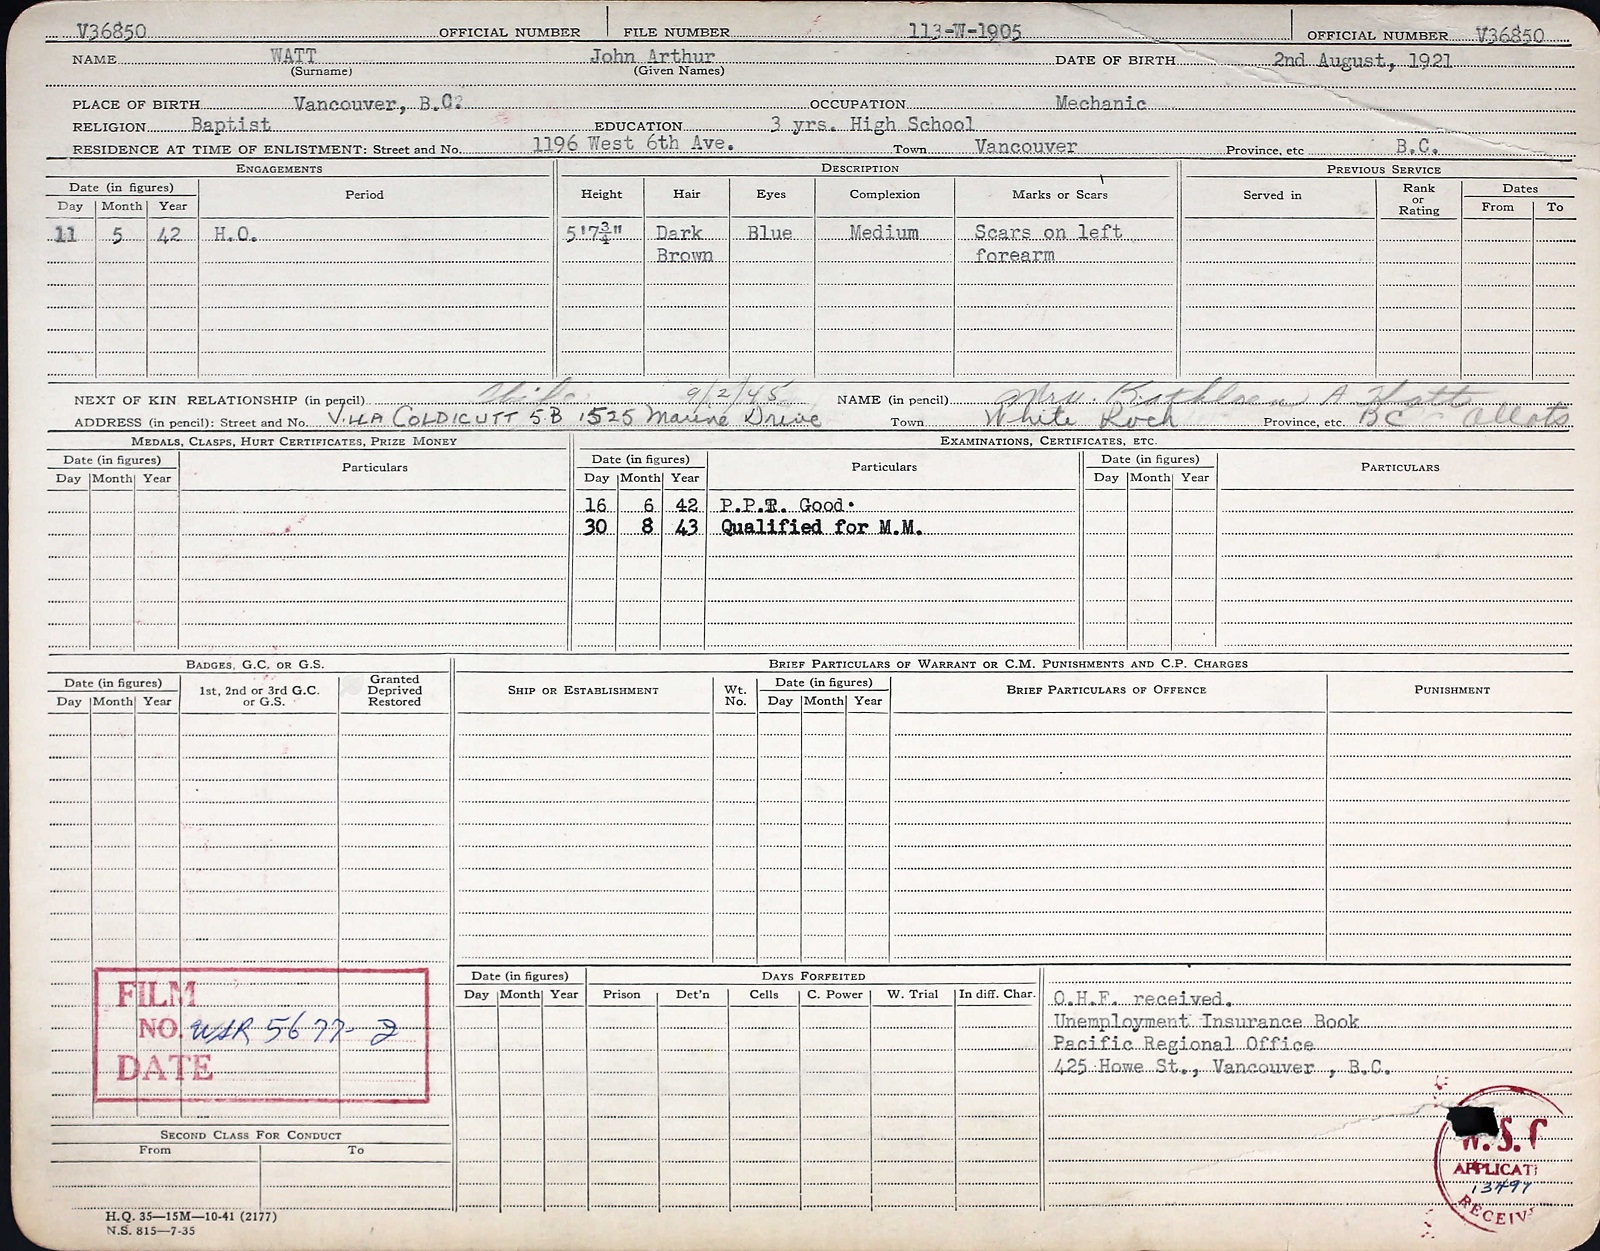 V36850 OFFICIAL NUMBER FILE NUMBER 113-W-1905 OFFICIAL NUMBER V36850
NAME WATT John Arthur DATE OF BIRTH 2nd August, 1921
(Surname) (Given Names)
PLACE OF BIRTH Vancouver, B.C. OCCUPATION Mechanic
RELIGION Baptist EDUCATION 3 yrs. High School
RESIDENCE AT TIME OF ENLISTMENT: Street and No. 1196 West 6th Ave. Town Vancouver Province, etc B.C.
ENGAGEMENTS DESCRIPTION PREVIOUS SERVICE
Date (in figures) Period Height Hair Eyes Complexion Marks or Scars Served in Rank or Rating Dates
Day Month Year From To
11 5 42 H.O. 5'7¾" Dark Blue Medium Scars on left
Brown forearm
NEXT OF KIN RELATIONSHIP (in pencil) Wife 9/2/45 NAME (in pencil) Mrs. Kathleen A Watt
ADDRESS (in pencil): Street and No. VILLA COLDICUTT 5B 1525 Marine Drive Town White Rock Province, etc. BC Allots
MEDALS, CLASPS, HURT CERTIFICATES, PRIZE MONEY EXAMINATIONS, CERTIFICATES, ETC.
Date (in figures) Particulars Date (in figures) Particulars Date (in figures) PARTICULARS
Day Month Year Day Month Year Day Month Year
16 6 42 P.P.T. Good.
30 8 43 Qualified for M.M.
BADGES, G.C. OR G.S. BRIEF PARTICULARS OF WARRANT OR C.M. PUNISHMENTS AND C.P. CHARGES
Date (in figures) 1st, 2nd or 3rd G.C. or G.S. Granted Deprived Restored SHIP OR ESTABLISHMENT Wt. No. Date (in figures) BRIEF PARTICULARS OF OFFENCE PUNISHMENT
Day Month Year Day Month Year
Date (in figures) DAYS FORFEITED
Day Month Year Prison Det'n Cells C. Power W. Trial In diff. Char.
FILM
NO. WSR 5677-2
DATE
O.H.F. received.
Unemployment Insurance Book
Pacific Regional Office
425 Howe St., Vancouver , B.C.
SECOND CLASS FOR CONDUCT
From To
W.S.
APPLICATI
13497
RECEIV
H.Q. 35—15M—10-41 (2177)
N.S. 815—7-35